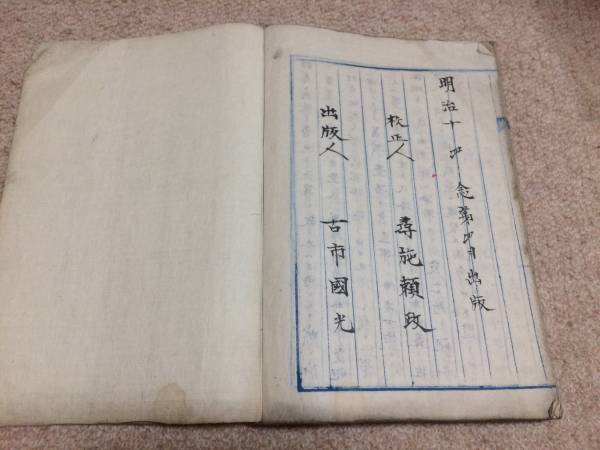 明治十 念第 月出版
校正人 尋施頼政
出版人 古市國光